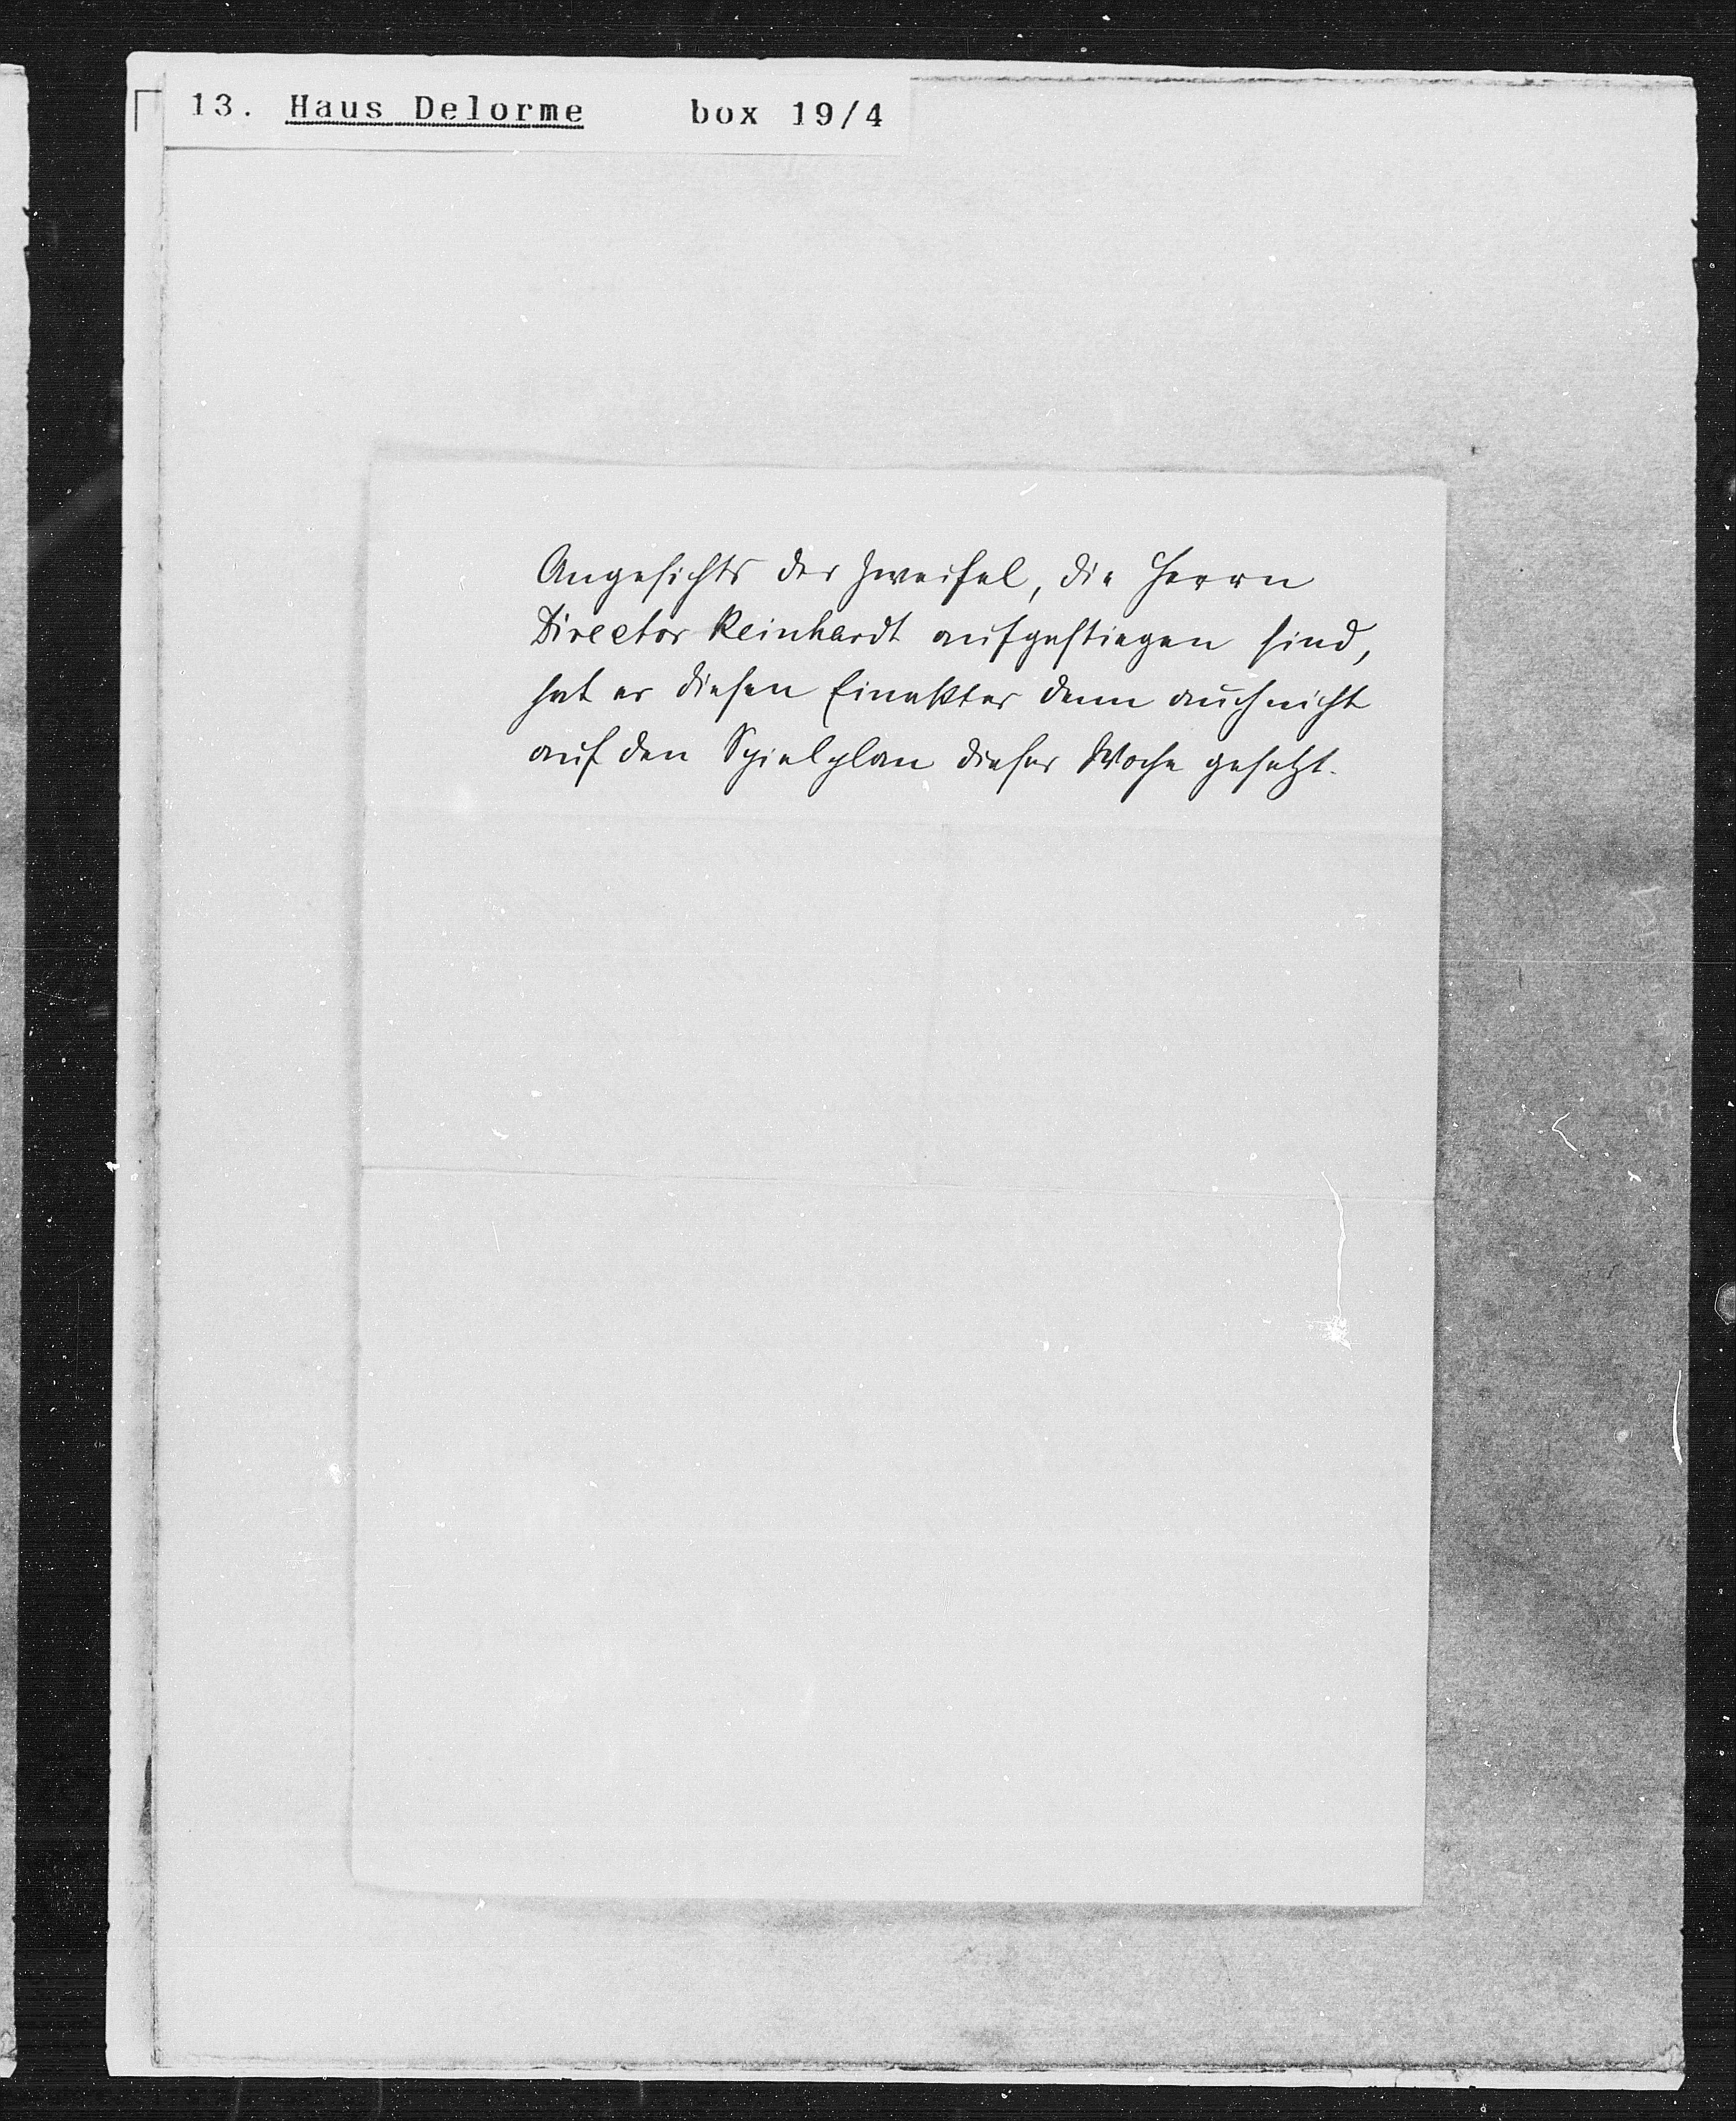 13. Haus Delorme box 19/4
Angesichts der Zweifel, die Herrn
Director Reinhardt aufgestiegen sind,
hat er diesen Einakter denn auch nicht
auf den Spielplan dieser Woche gesetzt.